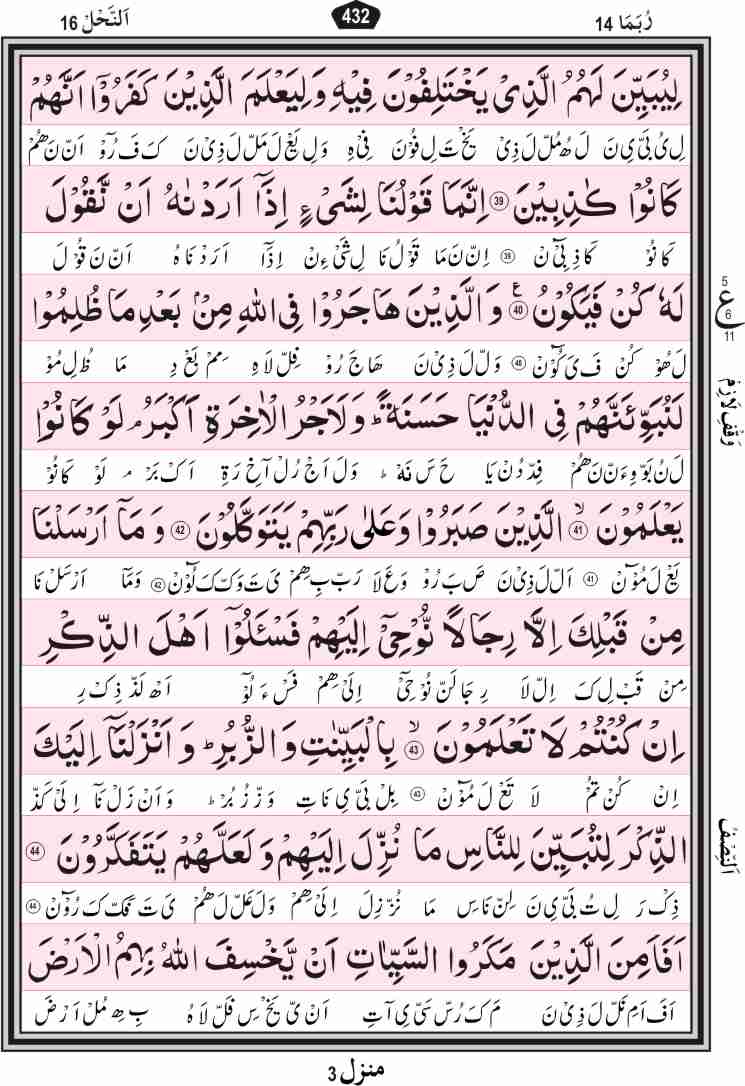 رُبَمَا 14 432 اَلنَّحْل 16
لِيُبَيِّنَ لَهُمُ الَّذِىْ يَخْتَلِفُوْنَ فِيْهِ وَلِيَعْلَمَ الَّذِيْنَ كَفَرُوْۤا اَنَّهُمْ
لِ ىُ بَىّ ىِ نَ لَ هُ مُلّ لَ ذِىْ يَخْ تَ لِ فُوْنَ فِىْ هِ وَ لِ يَعْ لَ مَلّ لَ ذِىْ نَ كَ فَ رُوْۤ اَنْ نَ هُمْ
كَانُوْا كٰذِبِيْنَ 39 اِنَّمَا قَوْلُنَا لِشَىْءٍ اِذَاۤ اَرَدْنٰهُ اَنْ نَّقُوْلَ
كَا نُوْ كَا ذِ بِىْۤ نْ 39 اِنْ نَ مَا قَوْ لُ نَا لِ شَىْ ءِنْ اِذَاۤ اَ رَدْ نَا هُ اَنّ نَ قُوْ لَ
لَهٗ كُنْ فَيَكُوْنُ 40 ع وَالَّذِيْنَ هَاجَرُوْا فِى اللّٰهِ مِنْۢ بَعْدِ مَا ظُلِمُوْا
لَ هُوْ كُنْ فَ ىَ كُوْۤنْ 40 وَلّ لَ ذِىْ نَ هَا جَ رُوْ فِلّ لَا هِ مِمْۢ بَعْ دِ مَا ظُ لِ مُوْ
5 ع 6 11
لَنُبَوِّئَنَّهُمْ فِى الدُّنْيَا حَسَنَةً ؕ وَلَاَجْرُ الْاٰخِرَةِ اَكْبَرُ ۘ لَوْ كَانُوْا
وَقْفِ لَازِمْ
لَ نُ بَوّ وِءَنّ نَ هُمْ فِدّ دُنْ يَا حَ سَ نَهْ ؕ وَ لَ اَجْ رُ لْ اٰ خِ رَةِ اَكْ بَرْ ۘ لَوْ كَا نُوْ
يَعْلَمُوْنَ ۙ 41 الَّذِيْنَ صَبَرُوْا وَعَلٰى رَبِّهِمْ يَتَوَكَّلُوْنَ 42 وَ مَاۤ اَرْسَلْنَا
يَعْ لَ مُوْۤنْ 41 اَلّ لَ ذِىْ نَ صَ بَ رُوْ وَ عَ لَا رَبّ بِ هِمْ ىَ تَ وَكّ كَ لُوْۤنْ 42 وَ مَاۤ اَرْ سَلْ نَا
مِنْ قَبْلِكَ اِلَّا رِجَالًا نُّوْحِىْۤ اِلَيْهِمْ فَسْـَٔلُوْۤا اَهْلَ الذِّكْرِ
مِنْ قَبْ لِ كَ اِلّ لَا رِ جَا لَنّ نُوْ حِىْۤ اِ لَىْ هِمْ فَسْ ءَ لُوْۤ اَهْ لَذّ ذِكْ رِ
اِنْ كُنْتُمْ لَا تَعْلَمُوْنَ ۙ 43 بِالْبَيِّنٰتِ وَ الزُّبُرِ ؕ وَ اَنْزَلْنَاۤ اِلَيْكَ
اِنْ كُنْ تُمْ لَا تَعْ لَ مُوْۤنْ 43 بِلْ بَىّ ىِ نَاتِ وَ زّ زُ بُرْ ؕ وَ اَنْ زَلْ نَاۤ اِ لَىْ كَذّ
الذِّكْرَ لِتُبَيِّنَ لِلنَّاسِ مَا نُزِّلَ اِلَيْهِمْ وَ لَعَلَّهُمْ يَتَفَكَّرُوْنَ 44
اَلنِّصْفُ
ذِكْ رَ لِ تُ بَىّ ىِ نَ لِنّ نَاسِ مَا نُزّ زِلَ اِ لَىْ هِمْ وَ لَ عَلّ لَ هُمْ ىَ تَ فَكّ كَ رُوْۤنْ 44
اَفَاَمِنَ الَّذِيْنَ مَكَرُوا السَّيِّاٰتِ اَنْ يَّخْسِفَ اللّٰهُ بِهِمُ الْاَرْضَ
اَفَ اَ مِ نَلّ لَ ذِىْ نَ مَ كَ رُسّ سَىّ ىِ آتِ اَنْ ىّ يَخْ سِ فَلّ لَا هُ بِ هِ مُلْ اَرْضَ
منزل 3